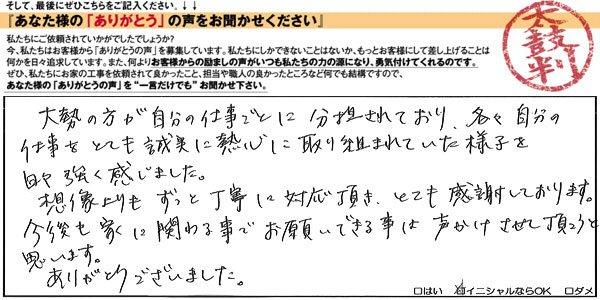 そして、最後にぜひこちらをご記入ください。↓↓↓
『あなた様の「ありがとう」の声をお聞かせください』
私たちにご依頼されていかがでしたでしょうか?
今、私たちはお客様から「ありがとうの声」を募集しています。私たちにしかできないことはないか、もっとお客様にして差し上げることは
何かを日々追求しています。また、何よりお客様からの励ましの声がいつも私たちの力の源になり、勇気付けてくれるのです。
ぜひ、私たちにお家の工事を依頼されて良かったこと、担当や職人の良かったところなど何でも結構ですので、
あなた様の「ありがとうの声」を“一言だけでも”お聞かせ下さい。
太鼓判
大勢の方が自分の仕事ごとに分担されており、各々自分の
仕事をとても誠実に熱心に取り組まれていた様子を
日々強く感じました。
想像よりもずっと丁寧に対応頂き、とても感謝しております。
今後も家に関わる事でお願いできる事は声かけさせて頂こうと
思います。
ありがとうございました。
□はい □イニシャルならOK □ダメ